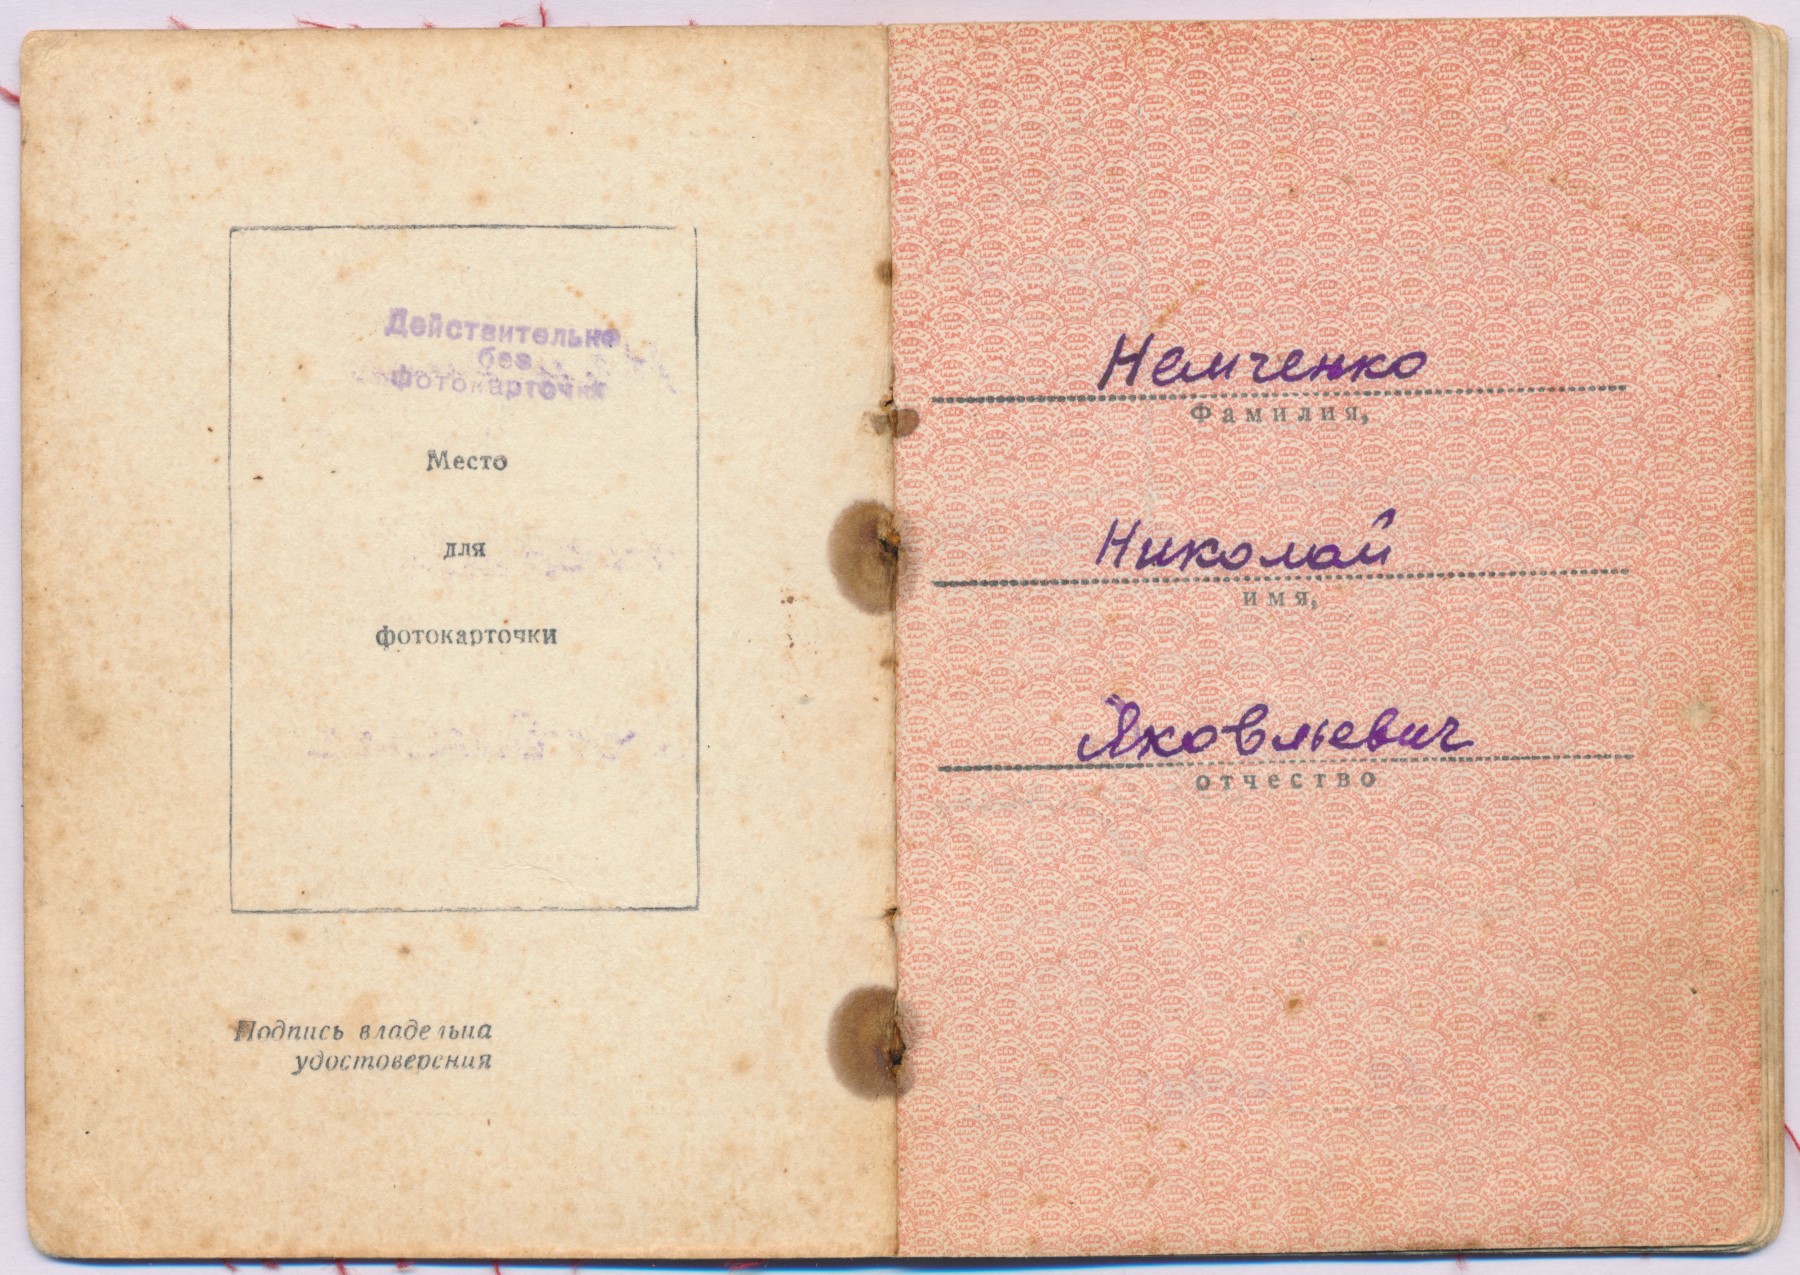 Действительно
без
фотокарточки
Место
для
фотокарточки
Подпись владельца
удостоверения
Немченко
Фамилия,
Николай
имя,
Яковлевич
отчество